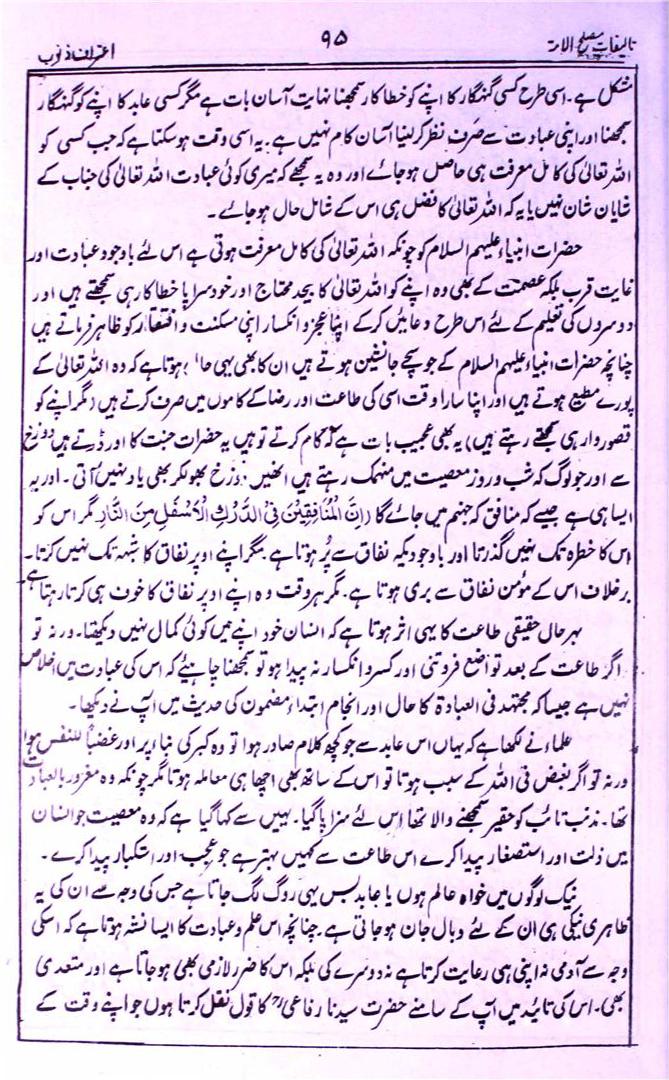 تالیفات مصلح الامۃ
۹۵
اعتراف ذنوب
مشکل ہے۔ اسی طرح کسی گنہگار کا اپنے کو خطا کار سمجھنا نہایت آسان بات ہے مگر کسی عابد کا اپنے کو گنہگار
سمجھنا اور اپنی عبادت سے صَرفِ نظر کر لینا آسان کام نہیں ہے۔ یہ اسی وقت ہو سکتا ہے کہ جب کسی کو
اللہ تعالیٰ کی کامل معرفت ہی حاصل ہو جائے اور وہ یہ سمجھے کہ میری کوئی عبادت اللہ تعالیٰ کی جناب کے
شایان شان نہیں یا یہ کہ اللہ تعالیٰ کا فضل ہی اس کے شامل حال ہو جائے۔
حضرات انبیاء علیہم السلام کو چونکہ اللہ تعالیٰ کی کامل معرفت ہوتی ہے اس لئے باوجود عبادت اور
غایت قرب بلکہ عصمت کے بھی وہ اپنے کو اللہ تعالیٰ کا بیحد محتاج اور خود سراپا خطا کار ہی سمجھتے ہیں اور
دوسروں کی تعلیم کے لئے اس طرح دعائیں کر کے اپنا عجز و انکسار اپنی مسکنت و افتقار کو ظاہر فرماتے ہیں
چنانچہ حضرات انبیاء علیہم السلام کے جو سچے جانشین ہوتے ہیں ان کا بھی یہی حال ہوتا ہے کہ وہ اللہ تعالیٰ کے
پورے مطیع ہوتے ہیں اور اپنا سارا وقت اسی کی طاعت اور رضا کے کاموں میں صرف کرتے ہیں (مگر اپنے کو
قصوروار ہی سمجھتے رہتے ہیں) یہ بھی عجیب بات ہے کہ کام کرتے تو ہیں یہ حضرات جنت کا اور ڈرتے ہیں دوزخ
سے اور جو لوگ کہ شب و روز معصیت میں منہمک رہتے ہیں انھیں دوزخ بھولکر بھی یاد نہیں آتی۔ اور یہ
ایسا ہی ہے جیسے کہ منافق کہ جہنم میں جائے گا (اِنَّ الْمُنَافِقِیْنَ فِی الدَّرْکِ الْاَسْفَلِ مِنَ النَّارِ مگر اس کو
اس کا خطرہ تک نہیں گذرتا اور باوجودیکہ نفاق سے پُر ہوتا ہے۔ مگر اپنے اوپر نفاق کا شبہ تک نہیں کرتا۔
برخلاف اس کے مؤمن نفاق سے بری ہوتا ہے۔ مگر ہر وقت وہ اپنے اوپر نفاق کا خوف ہی کرتا رہتا ہے
بہرحال حقیقی طاعت کا یہی اثر ہوتا ہے کہ انسان خود اپنے میں کوئی کمال نہیں دیکھتا۔ ورنہ تو
اگر طاعت کے بعد تواضع فروتنی اور کسر و انکسار نہ پیدا ہو تو سمجھنا چاہیئے کہ اس کی عبادت میں اخلاص
نہیں ہے جیسا کہ مجتہد فی العبادۃ کا حال اور انجام ابتداء مضمون کی حدیث میں آپ نے دیکھا۔
علماء نے لکھا ہے کہ یہاں اس عابد سے جو کچھ کلام صادر ہوا تو وہ کبر کی بناء پر اور غضباً للنفس ہوا
ورنہ تو اگر بغض فی اللہ کے سبب ہوتا تو اس کے ساتھ بھی اچھا ہی معاملہ ہوتا مگر چونکہ وہ مغرور بالعبادت
تھا۔ مذنب تائب کو حقیر سمجھنے والا تھا اس لئے سزا پا گیا۔ یہیں سے کہا گیا ہے کہ وہ معصیت جو انسان
میں ذلت اور استصغار پیدا کرے اس طاعت سے کہیں بہتر ہے جو عجب اور استکبار پیدا کرے۔
نیک لوگوں میں خواہ عالم ہوں یا عابد بس یہی روگ لگ جاتا ہے جس کی وجہ سے ان کی یہ
ظاہری نیکی ہی ان کے لئے وبال جان ہو جاتی ہے۔ چنانچہ اس علم و عبادت کا ایسا نشہ ہوتا ہے کہ اسکی
وجہ سے آدمی نہ اپنی ہی رعایت کرتا ہے نہ دوسرے کی بلکہ اس کا ضرر لازمی بھی ہو جاتا ہے اور متعدی
بھی۔ اس کی تائید میں آپ کے سامنے حضرت سیدنا رفاعیؒ کا قول نقل کرتا ہوں جو اپنے وقت کے